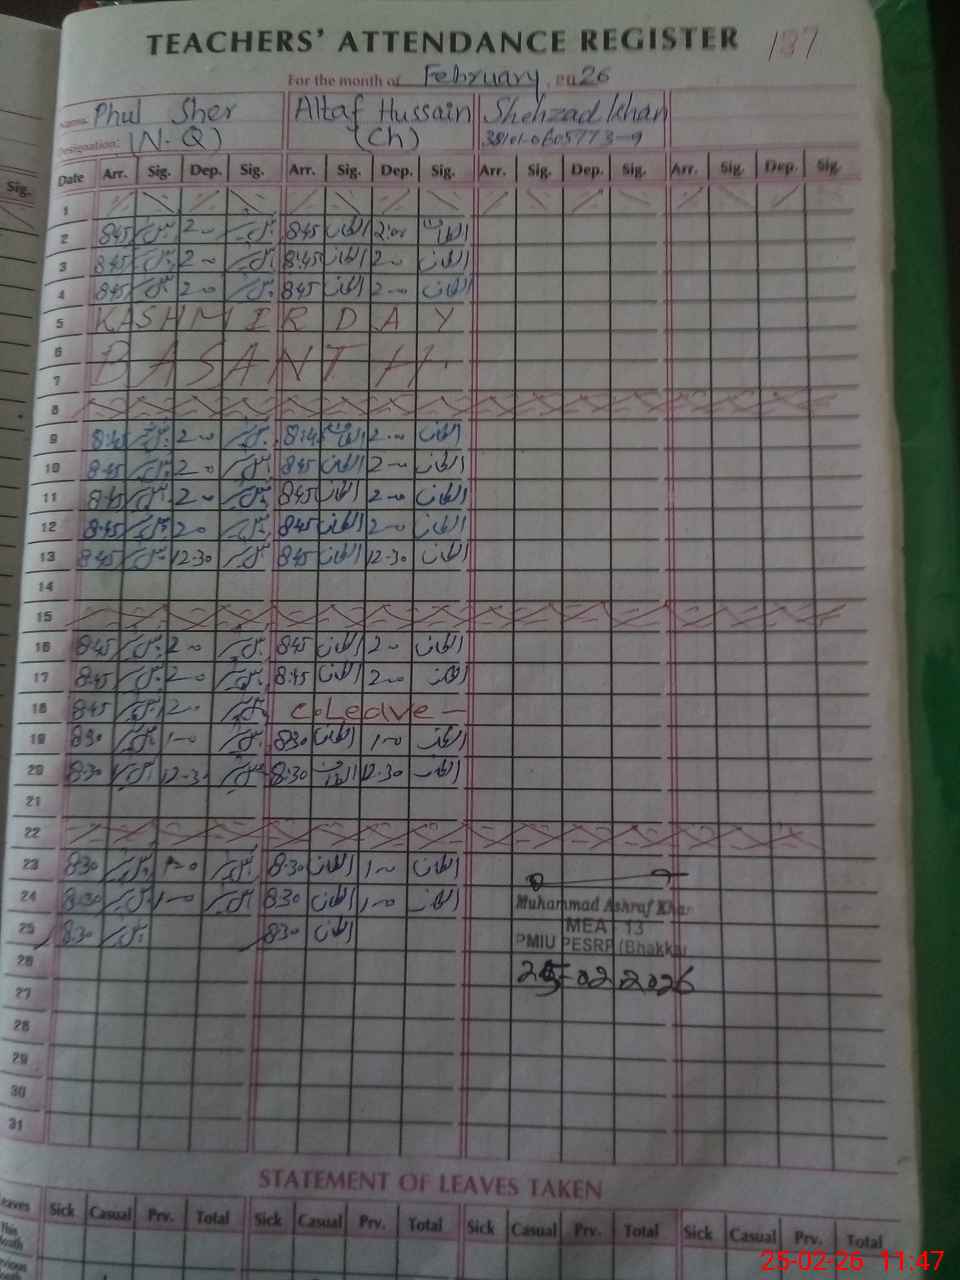 TEACHERS' ATTENDANCE REGISTER 137
For the month of February, 2026
Name: Phul Sher Altaf Hussain Shehzad Khan
Designation: (N-Q) (Ch) 38101-0605773-9
Sig. Date Arr. Sig. Dep. Sig. Arr. Sig. Dep. Sig. Arr. Sig. Dep. Sig. Arr. Sig. Dep. Sig.
1
2 8:45 2-00 8:45 الطاف 2:00 الطاف
3 8:45 2-00 8:45 الطاف 2-00 الطاف
4 8:45 2-00 8:45 الطاف 2-00 الطاف
5 KASHMIR DAY
6 BASANT H.
7
8
9 8:45 2-00 8:45 الطاف 2-00 الطاف
10 8:45 2-0 8:45 الطاف 2-00 الطاف
11 8:45 2-00 8:45 الطاف 2-00 الطاف
12 8:45 2-0 8:45 الطاف 2-0 الطاف
13 8:45 12-30 8:45 الطاف 12-30 الطاف
14
15
16 8:45 2-0 8:45 الطاف 2-0 الطاف
17 8:45 2-0 8:45 الطاف 2-00 الطاف
18 8:45 2-0 C.Leave -
19 8:30 1-0 8:30 الطاف 1-0 الطاف
20 8:30 12-30 8:30 الطاف 12-30 الطاف
21
22
23 8:30 1-0 8:30 الطاف 1-0 الطاف
24 8:30 1-0 8:30 الطاف 1-0 الطاف
25 8:30 8:30 الطاف
Muhammad Ashraf Khan
MEA 13
PMIU PESRP (Bhakkar
25-02-2026
26
27
28
29
30
31
STATEMENT OF LEAVES TAKEN
Leaves Sick Casual Prv. Total Sick Casual Prv. Total Sick Casual Prv. Total Sick Casual Prv. Total
This
Month
25-02-26 11:47